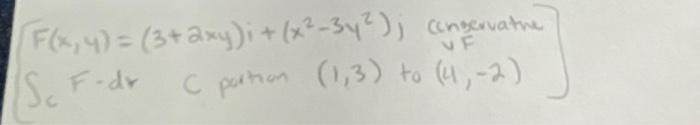 F(x,y) = (3+2xy)i + (x²-3y²)j conservative VF
∫c F·dr C portion (1,3) to (4,-2)